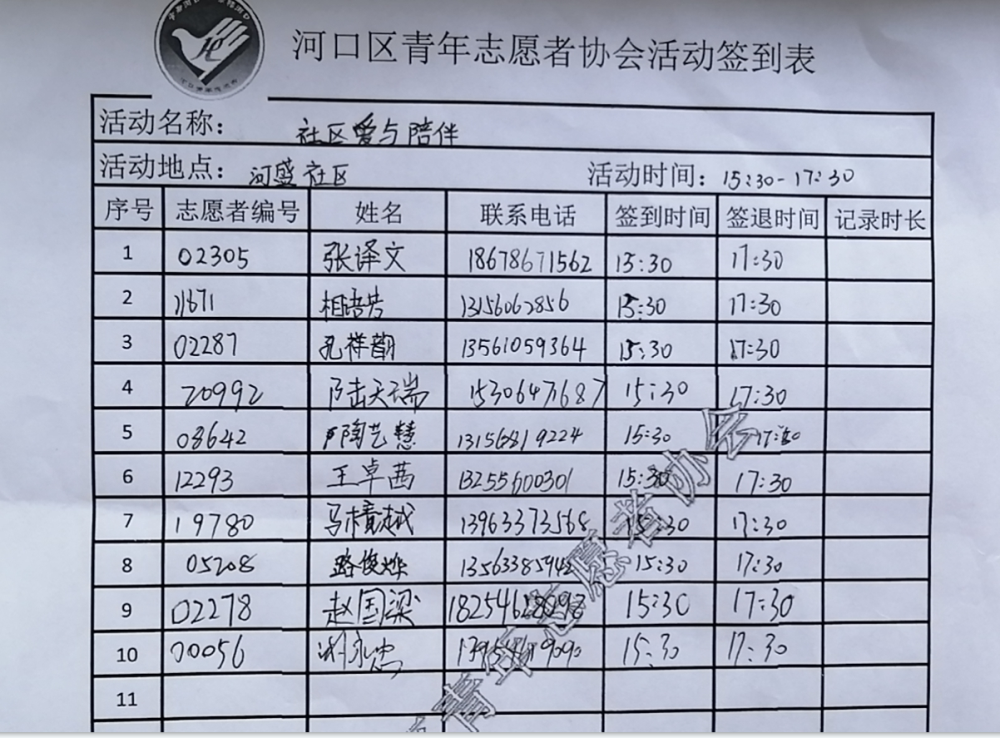 河口区青年志愿者协会活动签到表
活动名称: 社区爱与陪伴
活动地点: 河盛社区 活动时间: 15:30-17:30
序号 志愿者编号 姓名 联系电话 签到时间 签退时间 记录时长
1 02305 张译文 18678671562 15:30 17:30
2 11671 13156062856 15:30 17:30
3 02287 孔祥韵 13561059364 15:30 17:30
4 20992 陆天瑞 15306471687 15:30 17:30
5 08642 陶艺慧 13156819224 15:30 17:30
6 12293 王卓茜 13255600301 15:30 17:30
7 19780 13963373568 15:30 17:30
8 05208 路俊烨 15:30 17:30
9 02278 赵国梁 15:30 17:30
10 00056 15:30 17:30
11
青年志愿者协会